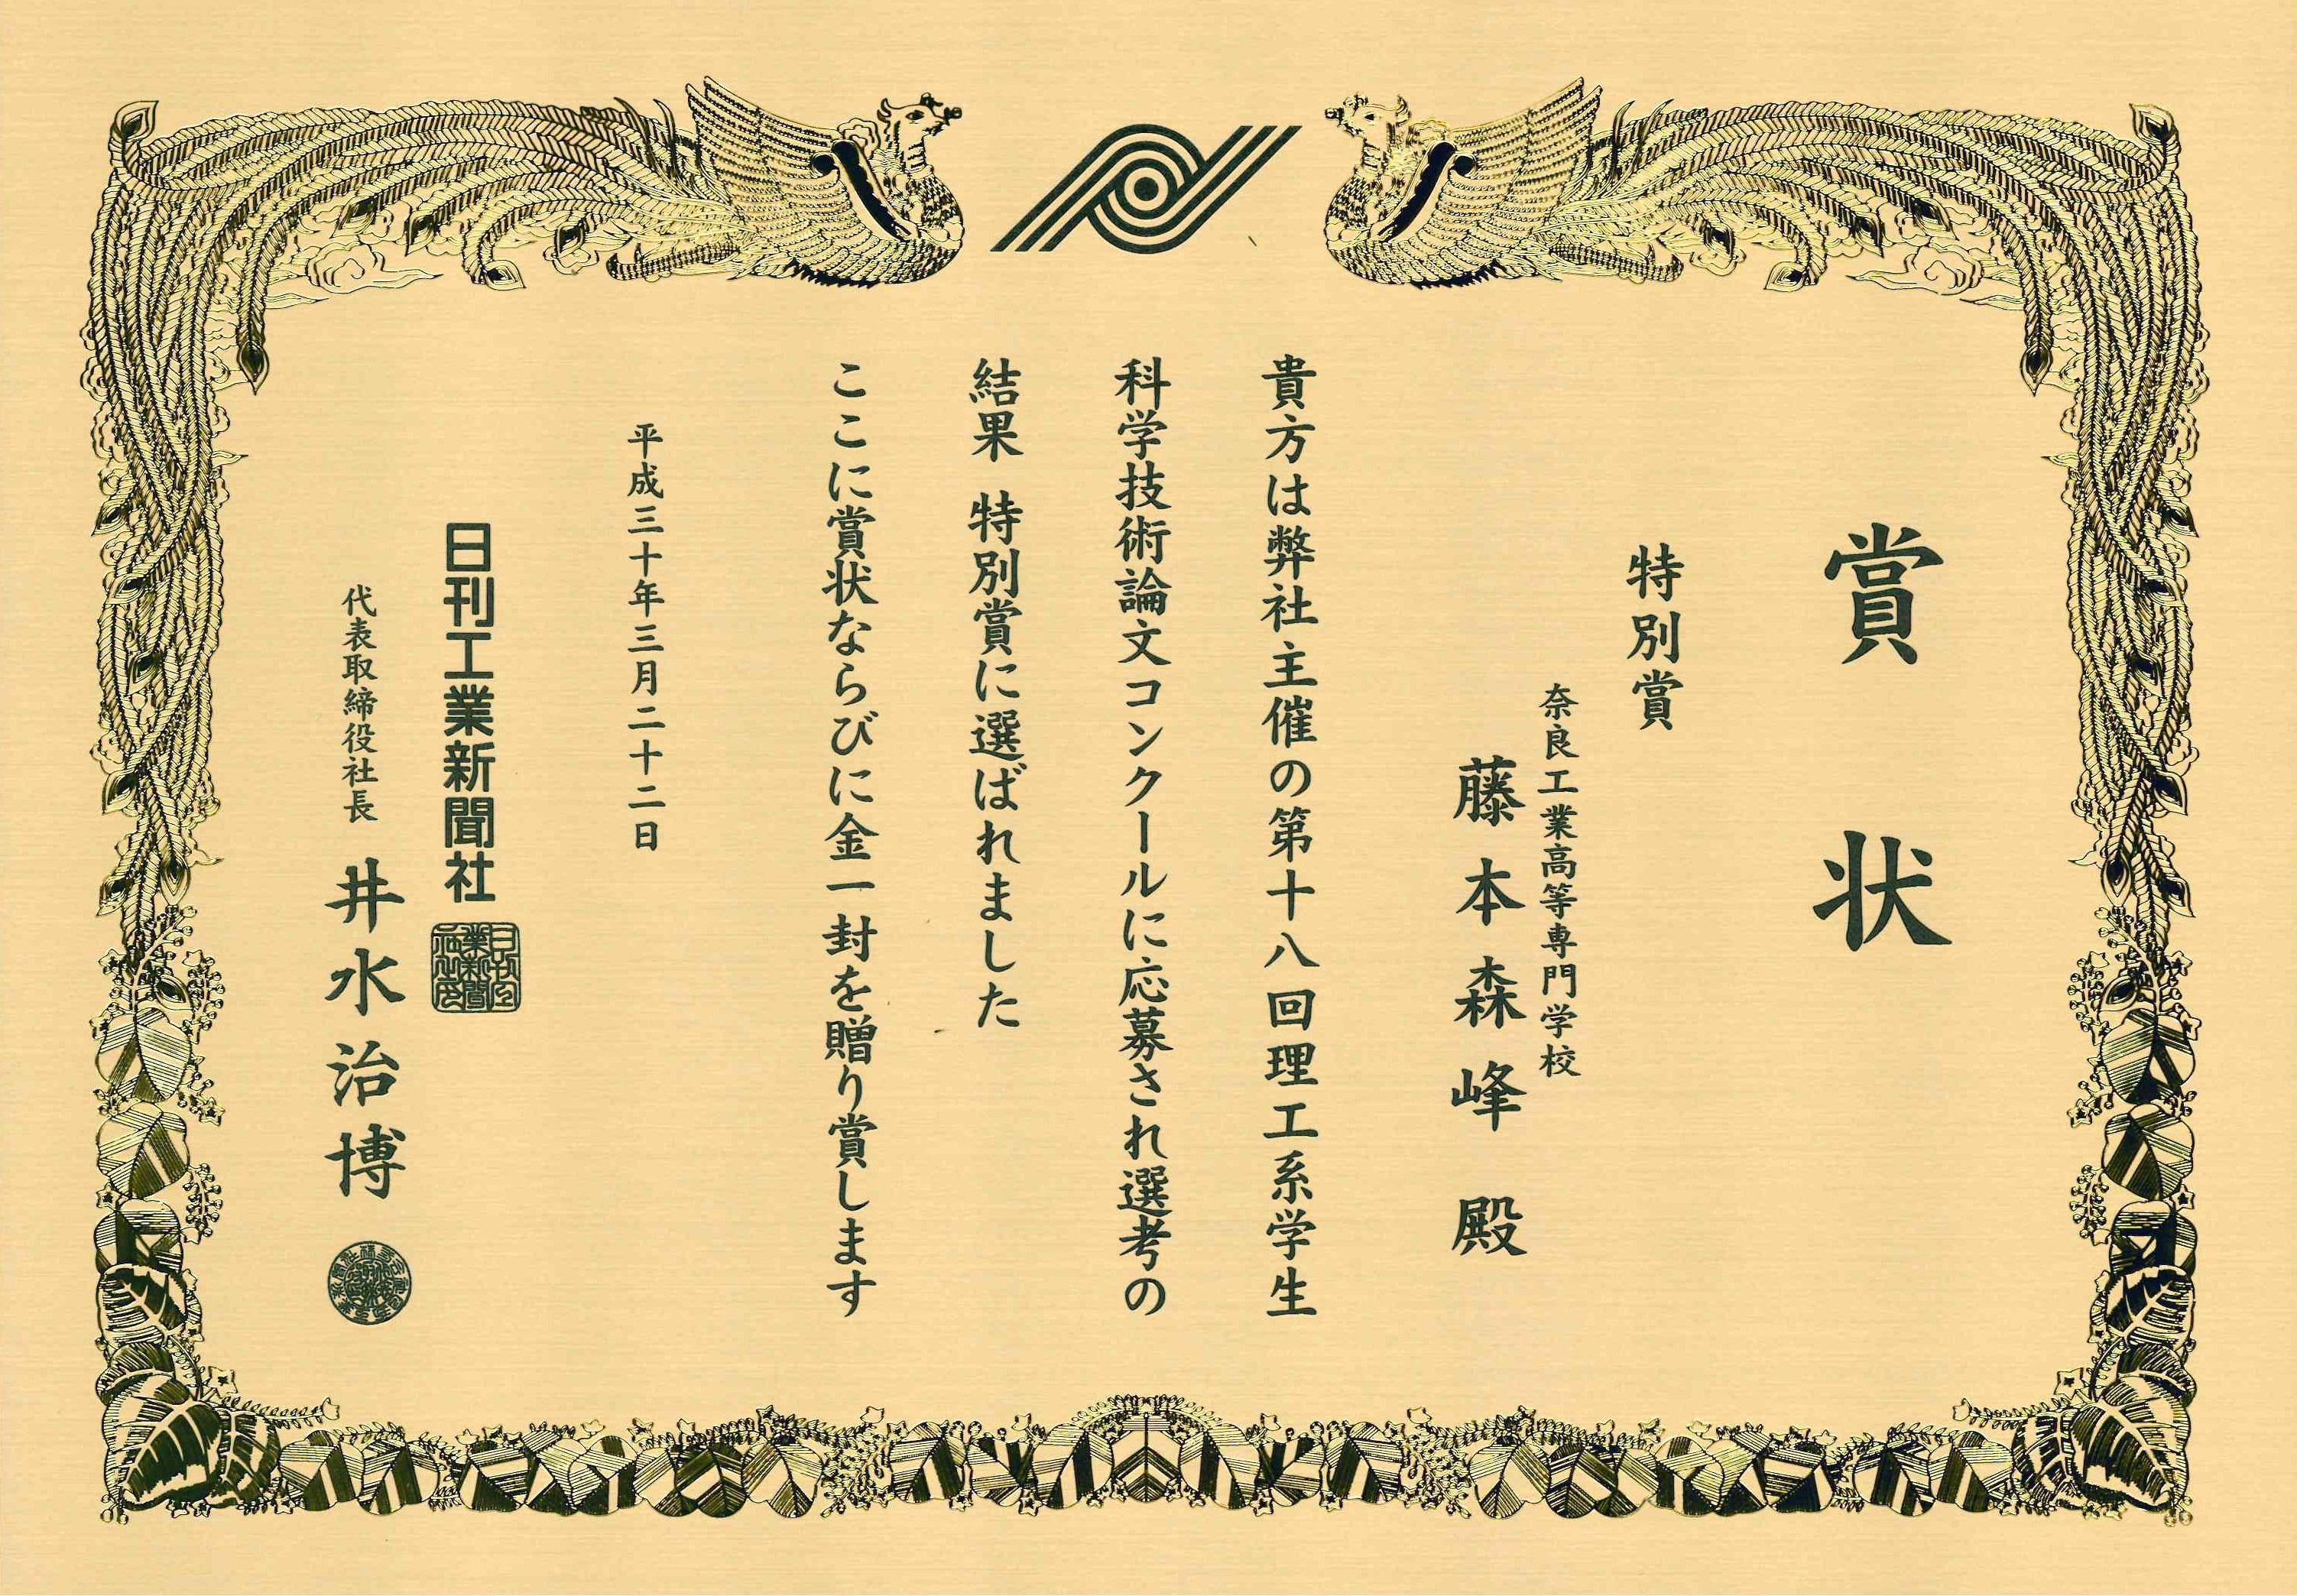 賞状
特別賞
奈良工業高等専門学校
藤本森峰 殿
貴方は弊社主催の第十八回理工系学生
科学技術論文コンクールに応募され選考の
結果 特別賞に選ばれました
ここに賞状ならびに金一封を贈り賞します
平成三十年三月二十二日
日刊工業新聞社
代表取締役社長 井水治博